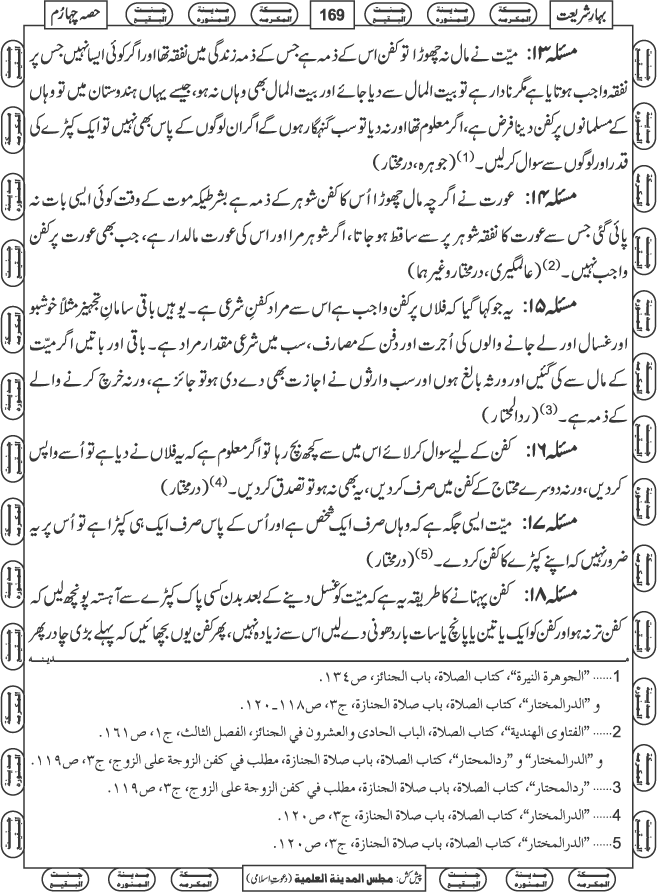 بہارِ شریعت
مـكـة المكرمه
مدينة المنوره
جنت البقيع
169
مـكـة المكرمه
مدينة المنوره
جنت البقيع
حصہ چہارم
مسئلہ ۱۳: میّت نے مال نہ چھوڑا تو کفن اس کے ذمہ ہے جس کے ذمہ زندگی میں نفقہ تھا اور اگر کوئی ایسا نہیں جس پر
نفقہ واجب ہوتا یا ہے مگر نادار ہے تو بیت المال سے دیا جائے اور بیت المال بھی وہاں نہ ہو، جیسے یہاں ہندوستان میں تو وہاں
کے مسلمانوں پر کفن دینا فرض ہے، اگر معلوم تھا اور نہ دیا تو سب گنہگار ہوں گے اگر ان لوگوں کے پاس بھی نہیں تو ایک کپڑے کی
قدر اور لوگوں سے سوال کر لیں۔ (1) (جوہرہ، درمختار)
مسئلہ ۱۴: عورت نے اگرچہ مال چھوڑا اُس کا کفن شوہر کے ذمہ ہے بشرطیکہ موت کے وقت کوئی ایسی بات نہ
پائی گئی جس سے عورت کا نفقہ شوہر پر سے ساقط ہو جاتا، اگر شوہر مرا اور اس کی عورت مالدار ہے، جب بھی عورت پر کفن
واجب نہیں۔ (2) (عالمگیری، درمختار وغیرہما)
مسئلہ ۱۵: یہ جو کہا گیا کہ فلاں پر کفن واجب ہے اس سے مراد کفنِ شرعی ہے۔ یوہیں باقی سامانِ تجہیز مثلاً خوشبو
اور غسال اور لے جانے والوں کی اُجرت اور دفن کے مصارف، سب میں شرعی مقدار مراد ہے۔ باقی اور باتیں اگر میّت
کے مال سے کی گئیں اور ورثہ بالغ ہوں اور سب وارثوں نے اجازت بھی دے دی ہو تو جائز ہے، ورنہ خرچ کرنے والے
کے ذمہ ہے۔ (3) (ردالمحتار)
مسئلہ ۱۶: کفن کے لیے سوال کر لائے اس میں سے کچھ بچ رہا تو اگر معلوم ہے کہ یہ فلاں نے دیا ہے تو اُسے واپس
کر دیں، ورنہ دوسرے محتاج کے کفن میں صرف کر دیں، یہ بھی نہ ہو تو تصدق کر دیں۔ (4) (درمختار)
مسئلہ ۱۷: میّت ایسی جگہ ہے کہ وہاں صرف ایک شخص ہے اور اُس کے پاس صرف ایک ہی کپڑا ہے تو اُس پر یہ
ضرور نہیں کہ اپنے کپڑے کا کفن کر دے۔ (5) (درمختار)
مسئلہ ۱۸: کفن پہنانے کا طریقہ یہ ہے کہ میّت کو غسل دینے کے بعد بدن کسی پاک کپڑے سے آہستہ پونچھ لیں کہ
کفن تر نہ ہو اور کفن کو ایک یا تین یا پانچ یا سات بار دھونی دے لیں اس سے زیادہ نہیں، پھر کفن یوں بچھائیں کہ پہلے بڑی چادر پھر
مدینه
1...... "الجوهرة النيرة"، كتاب الصلاة، باب الجنائز، ص١٣٤.
و "الدرالمختار"، كتاب الصلاة، باب صلاة الجنازة، ج٣، ص١١٨-١٢٠.
2...... "الفتاوى الهندية"، كتاب الصلاة، الباب الحادى والعشرون في الجنائز، الفصل الثالث، ج١، ص١٦١.
و "الدرالمختار" و "ردالمحتار"، كتاب الصلاة، باب صلاة الجنازة، مطلب في كفن الزوجة على الزوج، ج٣، ص١١٩.
3...... "ردالمحتار"، كتاب الصلاة، باب صلاة الجنازة، مطلب في كفن الزوجة على الزوج، ج٣، ص١١٩.
4...... "الدرالمختار"، كتاب الصلاة، باب صلاة الجنازة، ج٣، ص١٢٠.
5...... "الدرالمختار"، كتاب الصلاة، باب صلاة الجنازة، ج٣، ص١٢٠.
مـكـة المكرمه
مدينة المنوره
جنت البقيع
پیش کش: مجلس المدينة العلمية (دعوتِ اسلامی)
مـكـة المكرمه
مدينة المنوره
جنت البقيع